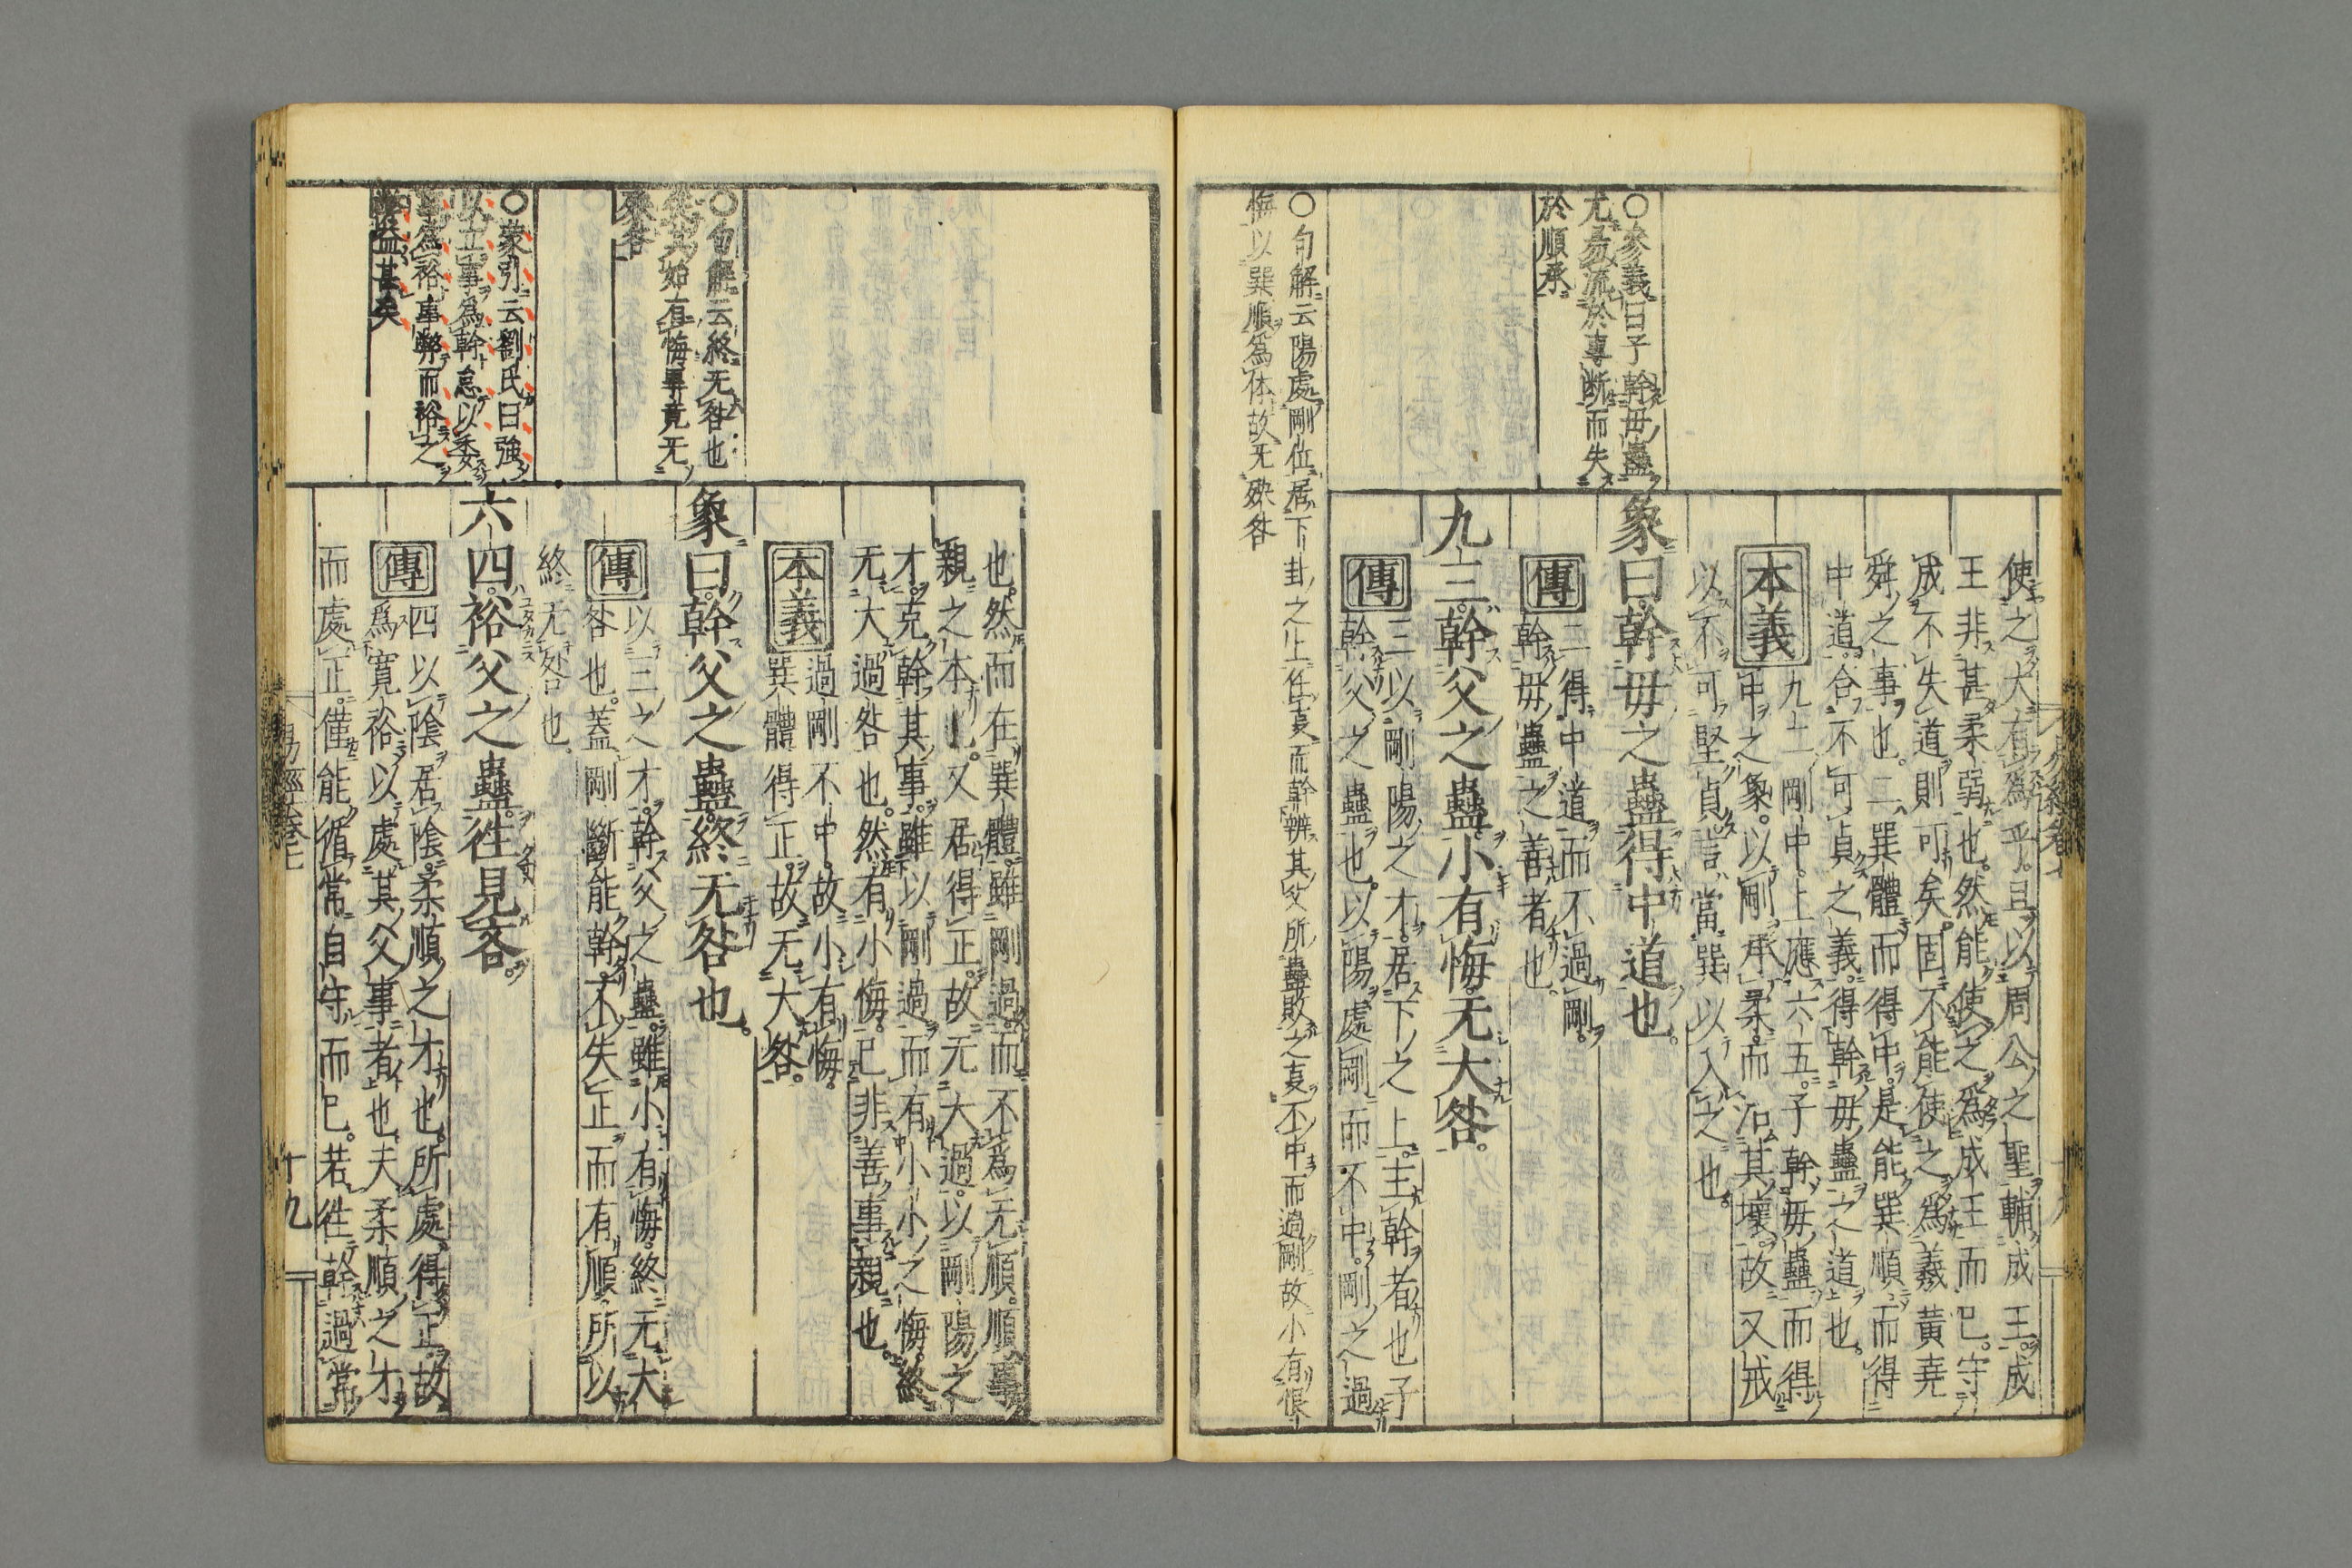 使之大有爲乎且以周公之聖輔成王成
王非甚柔弱也然能使之爲成王而已守
成不失道則可矣固不能使之爲羲黄堯
舜之事也二巽體而得中是能巽順而得
中道合不可貞之義得幹毋蠱之道也
本義
九二剛中上應六五子幹毋蠱而得
中之象以剛承柔而治其壞故又戒
以不可堅貞言當巽以入之也
象曰幹毋之蠱得中道也
傳
二得中道而不過剛
幹毋蠱之善者也
九三幹父之蠱小有悔无大咎
傳
三以剛陽之才居下之上主幹者也子
幹父之蠱也以陽處剛而不中剛之過
○參義曰子幹毋蠱
尤易流於專断而失
於順承
○句解云陽處剛位居下卦之上任事而幹辨其父所蠱敗之事不中而過剛故小有恨
悔以巽順爲体故无殃咎
易經卷七
也然而在巽體雖剛過而不爲无順順事
親之本也又居得正故无大過以剛陽之
才克幹其事雖以剛過而有小小之悔終
无大過咎也然有小悔已非善事親也
本義
過剛不中故小有悔
巽體得正故无大咎
象曰幹父之蠱終无咎也
傳
以三之才幹父之蠱雖小有悔終无大
咎也蓋剛斷能幹不失正而有順所以
終无咎也
六四裕父之蠱往見吝
傳
四以陰居陰柔順之才也所處得正故
爲寛裕以處其父事者也夫柔順之才
而處正僅能循常自守而已若往幹過常
○句解云終无咎也
始有悔畢竟无
○蒙引云劉氏曰強
以立事爲幹怠以委
事爲裕事弊而裕之
益甚矣
易經卷七
十九